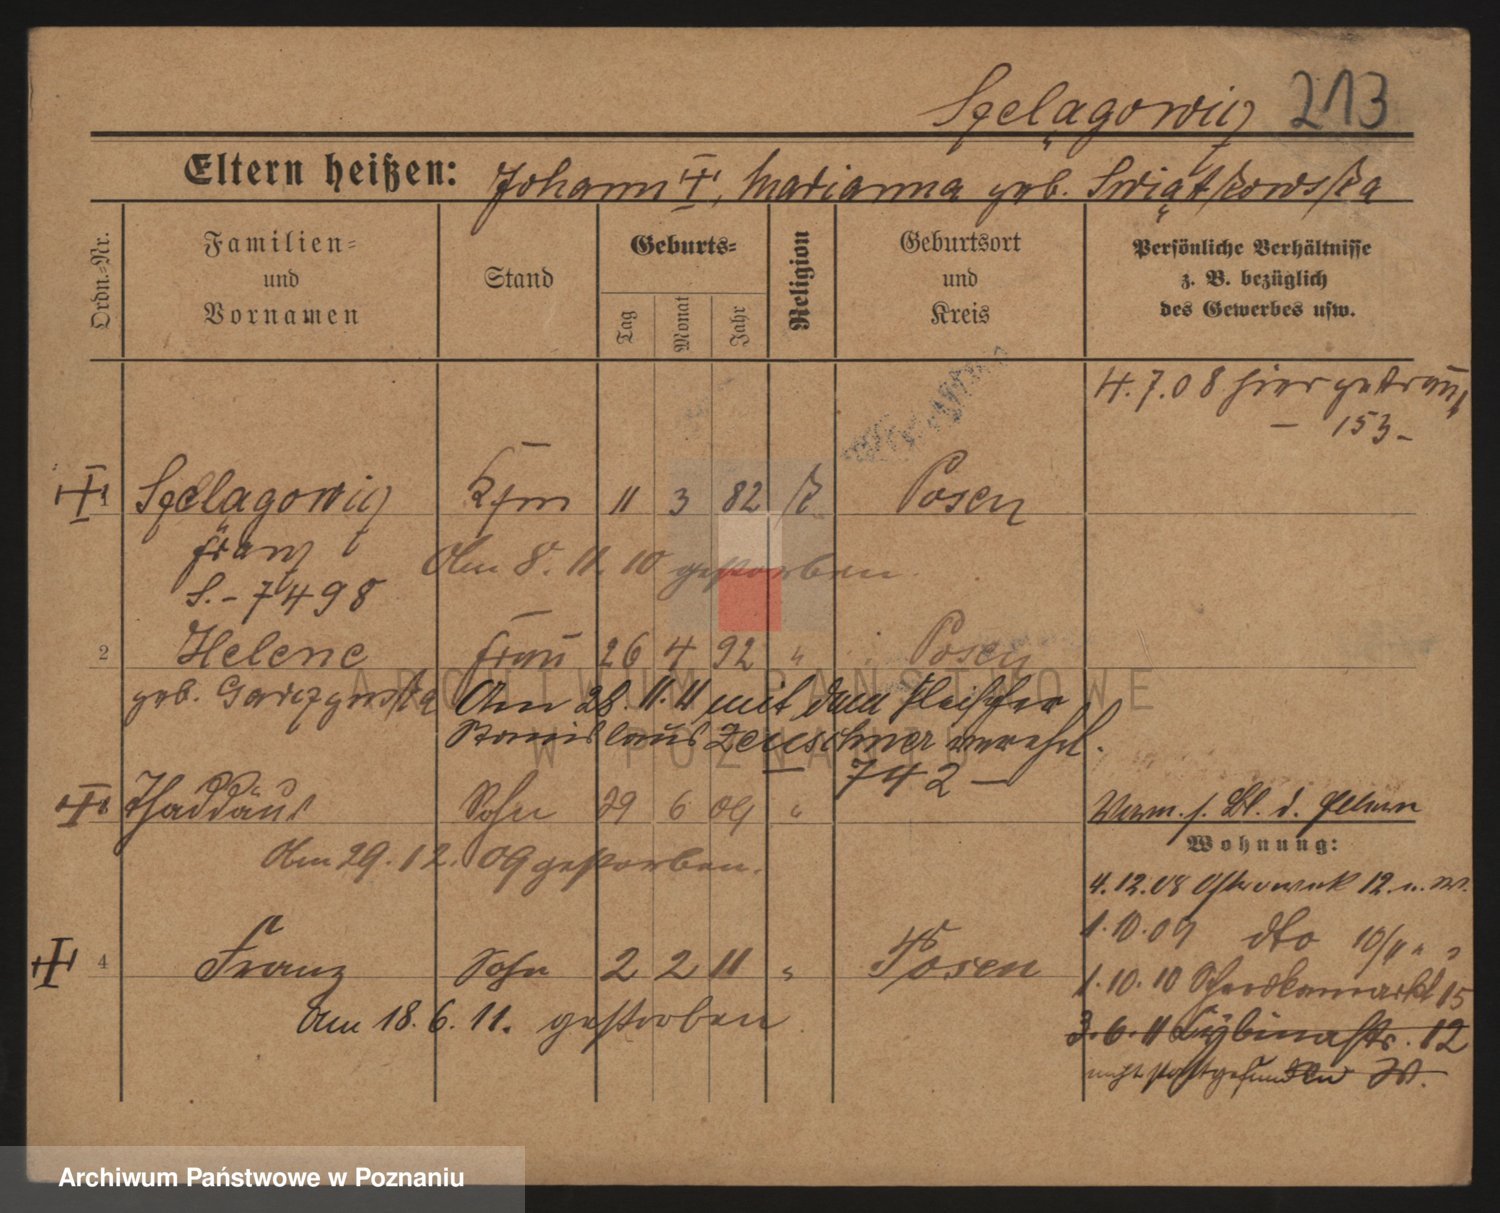 Szelągowicz 213
Eltern heißen: Johann, Marianna geb. Świątkowska
Ordn.-Nr.
Familien-
und
Vornamen
Stand
Geburts-
Tag
Monat
Jahr
Religion
Geburtsort
und
Kreis
Persönliche Verhältnisse
z. B. bezüglich
des Gewerbes usw.
4.7.08 hier getraut
– 153 –
1 Szelągowicz Kfm 11 3 82 k Posen
Franz Am 8.11.10 gestorben.
S. – 7498
2 Helene Frau 26 4 92 " " Posen
geb. Am 28.11.11 mit dem
Stanislaus Zeuschner verehl.
– 742 –
Thaddäus Sohn 29 6 09 "
Am 29.12.09 gestorben.
Verm. s. Bl. d.
Wohnung:
4.12.08 Ostrowek 12
1.10.09 dto 10/11 " "
4 Franz Sohn 2 2 11 " Posen
1.10.10 15
Am 18.6.11. gestorben
3.6.11 Cybinastr. 12
nicht stattgefunden
ARCHIWUM PAŃSTWOWE
W POZNANIU
Archiwum Państwowe w Poznaniu